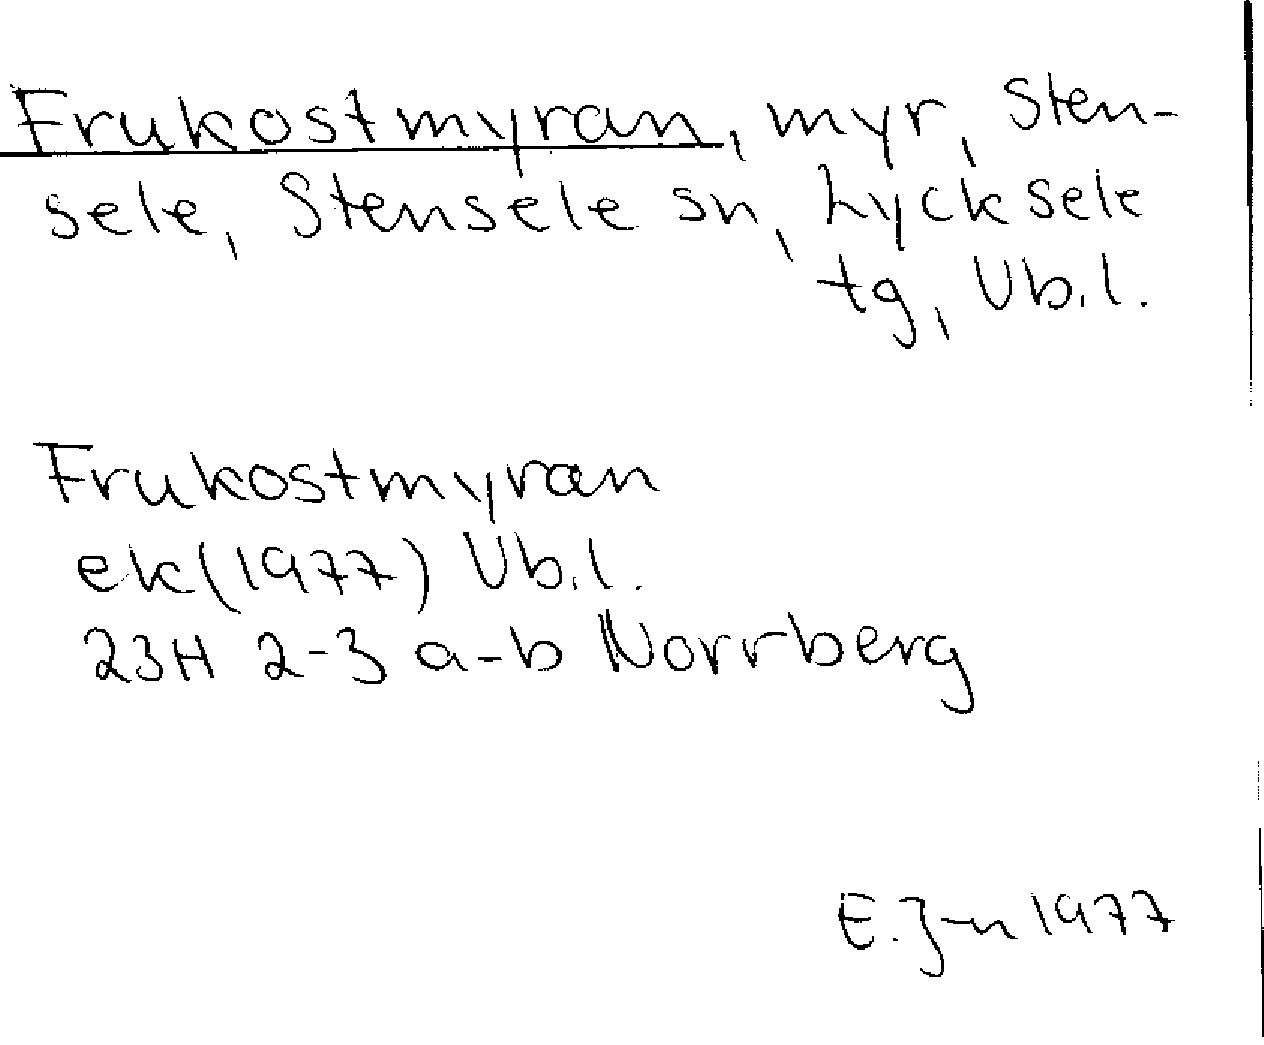 Frukostmyran, myr, Sten-
sele, Stensele sn, Lycksele
tg, Vb.l.
Frukostmyran
ek(1977) Vb.l.
23H 2-3 a-b Norrberg
E.J-n 1977